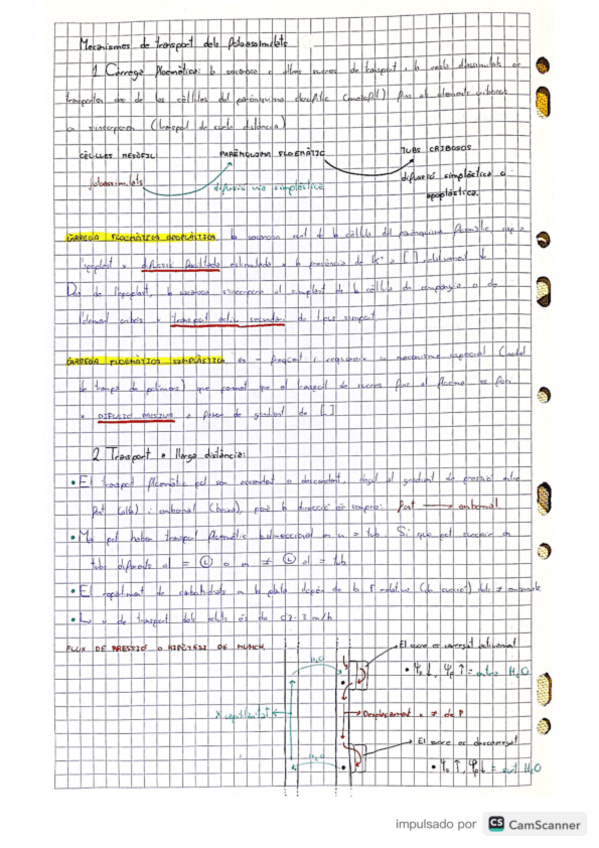 Mecanismes de transport dels fotoassimilats
1. Càrrega floemàtica: la sacarosa o altres sucres de transport, la resta d'assimilats es
transporten des de les cèl·lules del parènquima clorofílic (mesòfil) fins als elements cribosos
(transport de curta distància)
CÈL·LULES MESÒFIL
PARÈNQUIMA FLOEMÀTIC
TUBS CRIBOSOS
fotoassimilats
difusió via simplàstica
difusió simplàstica o
apoplàstica.
CÀRREGA FLOEMÀTICA APOPLÀSTICA la sacarosa surt de la cèl·lula del parènquima floemàtic, cap a
l'apoplast x difusió facilitada estimulada x la presència de K+ o [ ]
Des de l'apoplast, la sacarosa s'incorpora al simplast de la cèl·lula de companyia o de
l'element cribós x transport actiu secundari de tipus simport
CÀRREGA FLOEMÀTICA SIMPLÀSTICA és - freqüent i requereix un mecanisme especial (model
de trampa de polímers) que permet que el transport de sucres fins al floema es faci
x DIFUSIÓ PASSIVA a favor de gradient de [ ]
2. Transport a llarga distància:
• El transport floemàtic pot ser ascendent o descendent, degut al gradient de pressió entre
font (alta) i embornal (baixa), però la direcció és sempre: font → embornal
• No pot haber transport floemàtic bidireccional en un = tub. Si que pot succeir en
tubs diferents al = Ⓛ o en ≠ Ⓛ al = tub
• El repartiment de carbohidrats a la planta depèn de la F relativa (de succió) dels ≠ embornals
• La v de transport dels solts és de 0,3-3 m/h
FLUX DE PRESSIÓ o HIPÒTESI DE MUNCH.
El sucre es carregat activament
H2O
• Ψs ↓, Ψp ↑ = entra H2O
x capil·laritat
Desplaçament x ≠ de P
El sucre es descarregat
H2O
• Ψs ↑, Ψp ↓ = surt H2O
impulsado por CS CamScanner